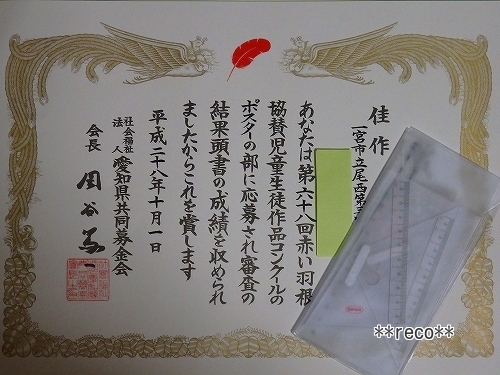 佳作
一宮市立尾西第
あなたは第六十八回赤い羽根
協賛児童生徒作品コンクールの
ポスターの部に応募され審査の
結果頭書の成績を収められ
ましたからこれを賞します
平成二十八年十月一日
社会福祉法人 愛知県共同募金会
会長
**reco**